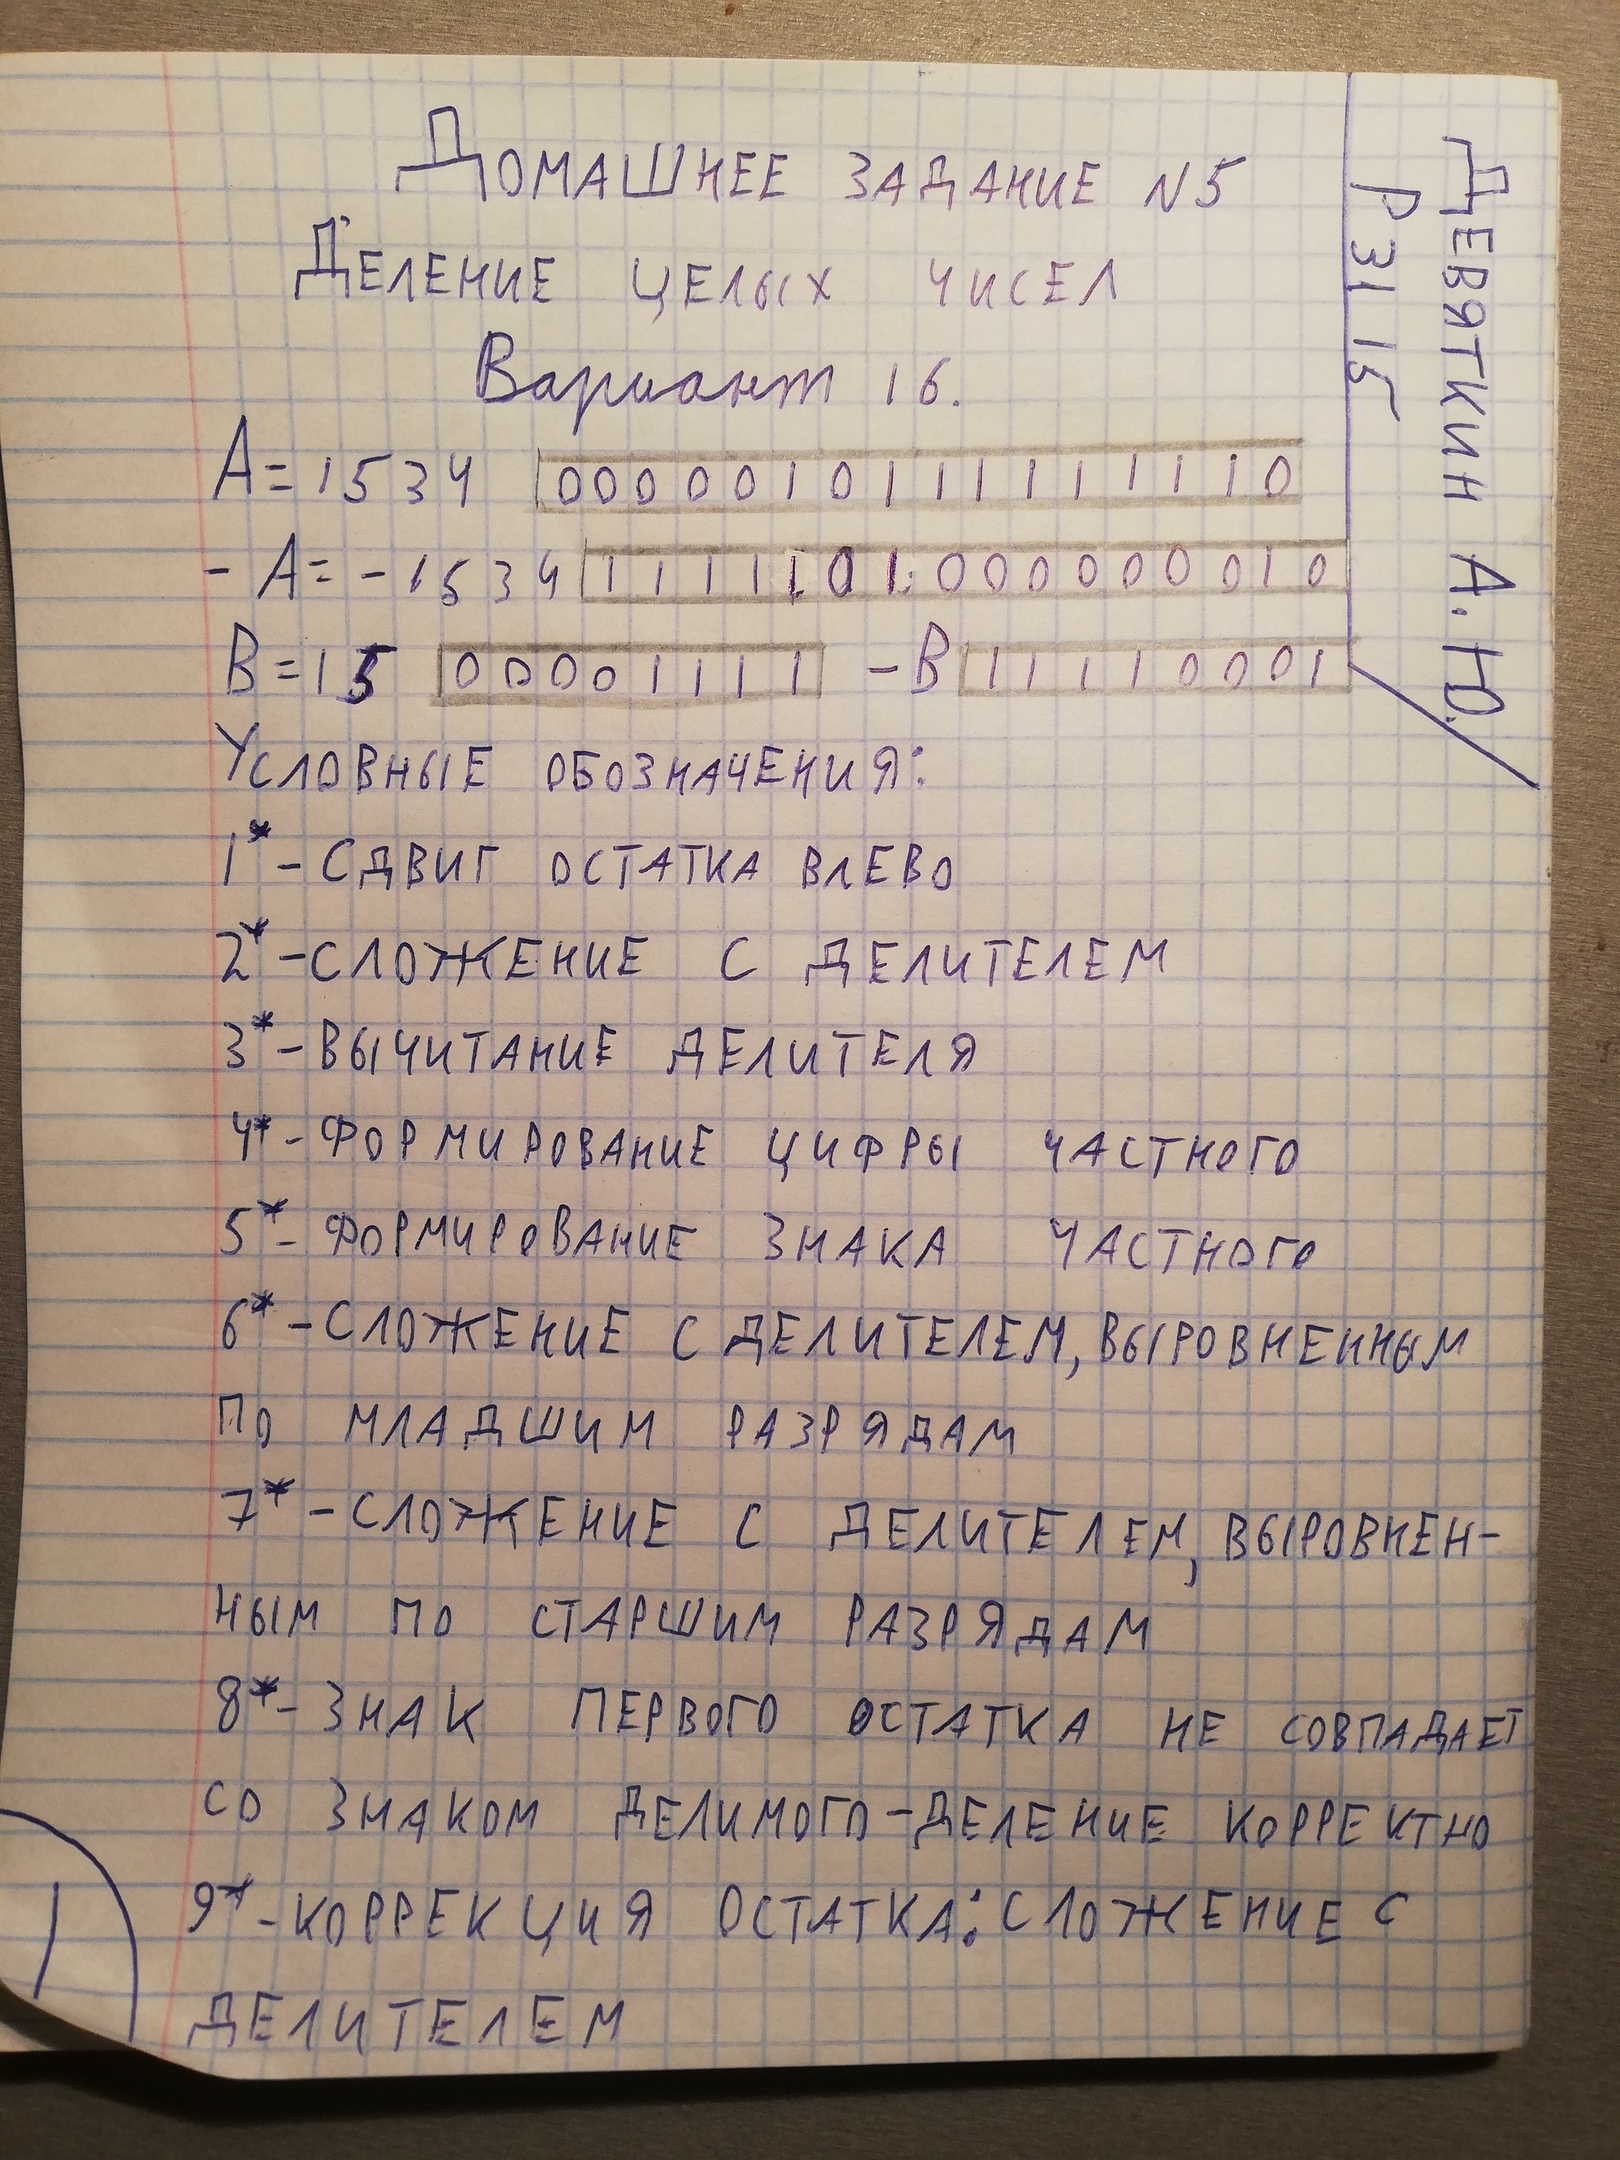 Домашнее задание N5
Деление целых чисел
Вариант 16.
A=1534 0000010111111110
-A=-1534 1111101000000010
B=15 00001111 -B 11110001
Условные обозначения:
1* - Сдвиг остатка влево
2* - сложение с делителем
3* - вычитание делителя
4* - формирование цифры частного
5* - формирование знака частного
6* - сложение с делителем, выровненным
по младшим разрядам
7* - сложение с делителем, выровнен-
ным по старшим разрядам
8* - знак первого остатка не совпадает
со знаком делимого - деление корректно
9* - коррекция остатка: сложение с
делителем
Девяткин А.Ю.
Р3115
1